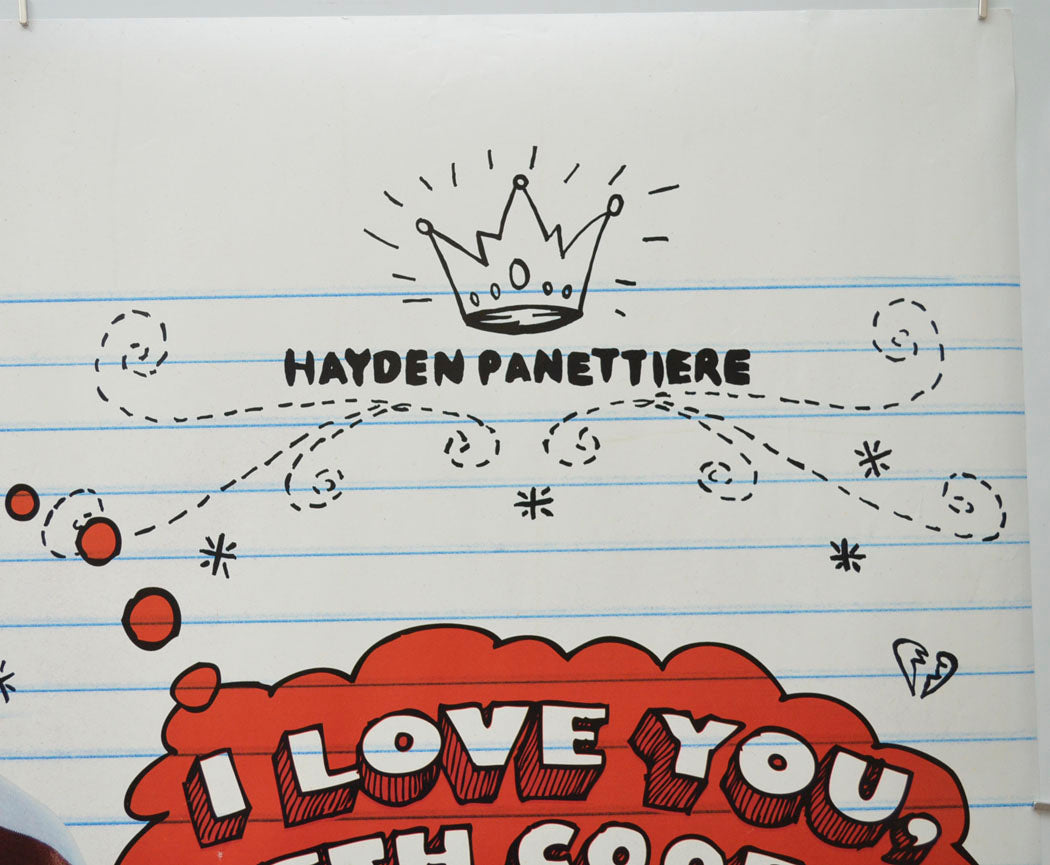 HAYDEN PANETTIERE
I LOVE YOU,